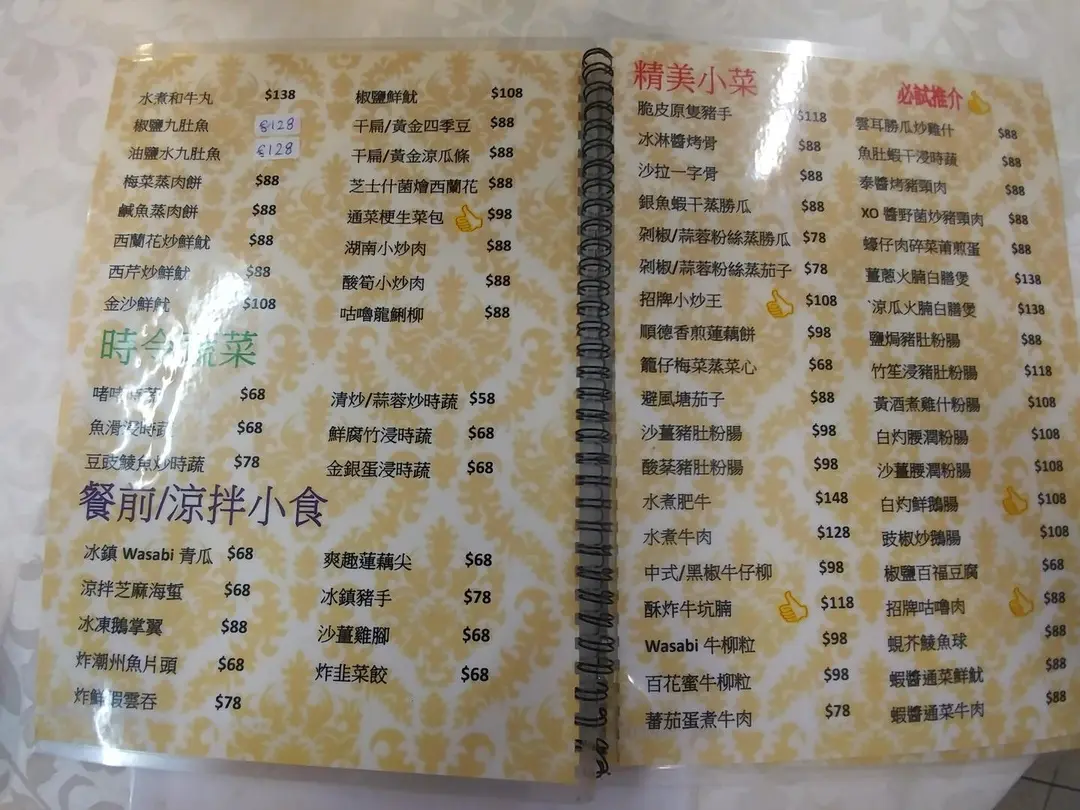 水煮和牛丸 $138
椒鹽九肚魚 $128
油鹽水九肚魚 $128
梅菜蒸肉餅 $88
鹹魚蒸肉餅 $88
西蘭花炒鮮魷 $88
西芹炒鮮魷 $88
金沙鮮魷 $108
椒鹽鮮魷 $108
干扁/黃金四季豆 $88
干扁/黃金涼瓜條 $88
芝士什菌燴西蘭花 $88
通菜梗生菜包 $98
湖南小炒肉 $88
酸筍小炒肉 $88
咕嚕龍脷柳 $88
時令蔬菜
啫啫時蔬 $68
魚滑浸時蔬 $68
豆豉鯪魚炒時蔬 $78
清炒/蒜蓉炒時蔬 $58
鮮腐竹浸時蔬 $68
金銀蛋浸時蔬 $68
餐前/涼拌小食
冰鎮 Wasabi 青瓜 $68
涼拌芝麻海蜇 $68
冰凍鵝掌翼 $88
炸潮州魚片頭 $68
炸鮮蝦雲吞 $78
爽趣蓮藕尖 $68
冰鎮豬手 $78
沙薑雞腳 $68
炸韭菜餃 $68
精美小菜
脆皮原隻豬手 $118
冰淋醬烤骨 $88
沙拉一字骨 $88
銀魚蝦干蒸勝瓜 $88
剁椒/蒜蓉粉絲蒸勝瓜 $78
剁椒/蒜蓉粉絲蒸茄子 $78
招牌小炒王 $108
順德香煎蓮藕餅 $98
籠仔梅菜蒸菜心 $68
避風塘茄子 $88
沙薑豬肚粉腸 $98
酸菜豬肚粉腸 $98
水煮肥牛 $148
水煮牛肉 $128
中式/黑椒牛仔柳 $98
酥炸牛坑腩 $118
Wasabi 牛柳粒 $98
百花蜜牛柳粒 $98
蕃茄蛋煮牛肉 $78
必試推介
雲耳勝瓜炒雞什 $88
魚肚蝦干浸時蔬 $88
泰醬烤豬頸肉 $88
XO 醬野菌炒豬頸肉 $88
蠔仔肉碎菜莆煎蛋 $88
薑蔥火腩白膳煲 $138
`涼瓜火腩白膳煲 $138
鹽焗豬肚粉腸 $88
竹笙浸豬肚粉腸 $118
黃酒煮雞什粉腸 $108
白灼腰潤粉腸 $108
沙薑腰潤粉腸 $108
白灼鮮鵝腸 $108
豉椒炒鵝腸 $108
椒鹽百福豆腐 $68
招牌咕嚕肉 $88
蜆芥鯪魚球 $88
蝦醬通菜鮮魷 $88
蝦醬通菜牛肉 $88